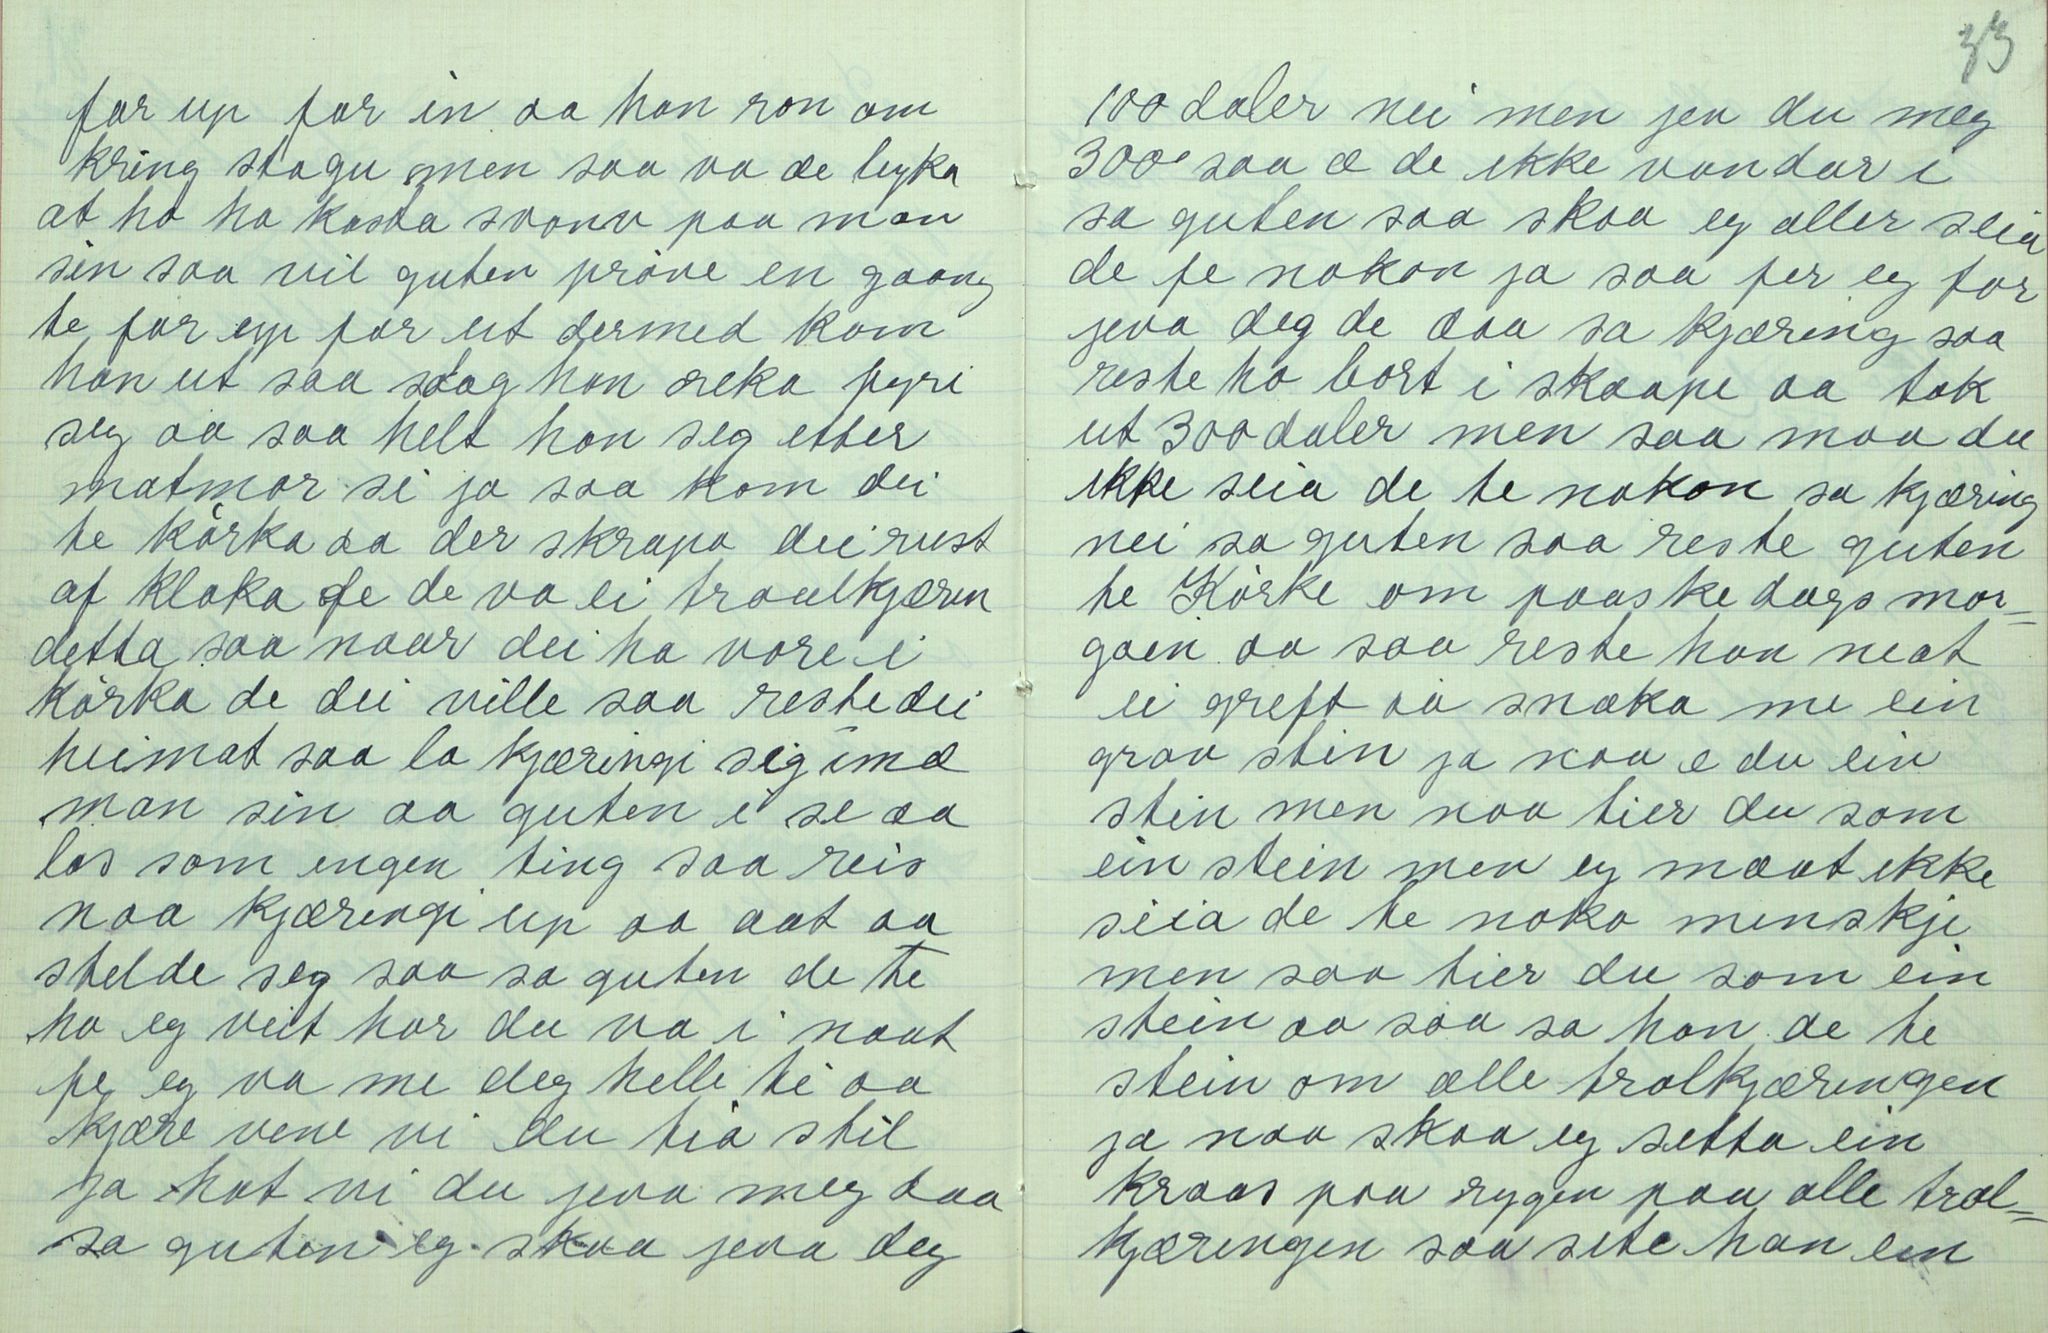 far up far in aa han ron om
kring stogu men saa va de lyka
at ho ha kasta svonv paa man
sin saa vil guten pröve en gaang
te far up far ut dermed kom
han ut saa saag han reka fyri
seg aa saa helt han seg etter
matmor si ja saa kom dei
te körka aa der skrapa dei rust
af kloka fe de va ei traulkjæren
detta saa naar dei ha vore i
körka de dei ville saa reste dei
heimat saa la kjæringi sig imæ
man sin aa guten i se aa
los som engen ting saa reis
naa kjæringi up aa aat aa
stelde seg saa sa guten de te
ho eg veit hor du va i naat
fe eg va me deg helle ti aa
kjære vene vi du tia stil
ja hot vi du jeva meg daa
sa guten eg skaa jeva deg
33
100 daler nei men jev du meg
300 saa æ de ikke vondar i
sa guten saa skaa eg aller seia
de fe nokon ja saa fer eg for
jeva deg de daa sa kjæring saa
reste ho bort i skaape aa tok
ut 300 daler men saa maa du
ikke seia de te nokon sa kjæring
nei sa guten saa reste guten
te Körke om paaskedags mor=
goen aa saa reste han neat
ei greft aa snaka me ein
grav stin ja naa e du ein
stin men naa tier du som
ein stein men eg maat ikke
seia de te noko menskje
men saa tier du som ein
stein aa saa sa han de te
stein om ælle tralkjæringen
ja naa skaa eg setta ein
kraas paa rygen paa alle tral=
kjæringen saa sete han ein